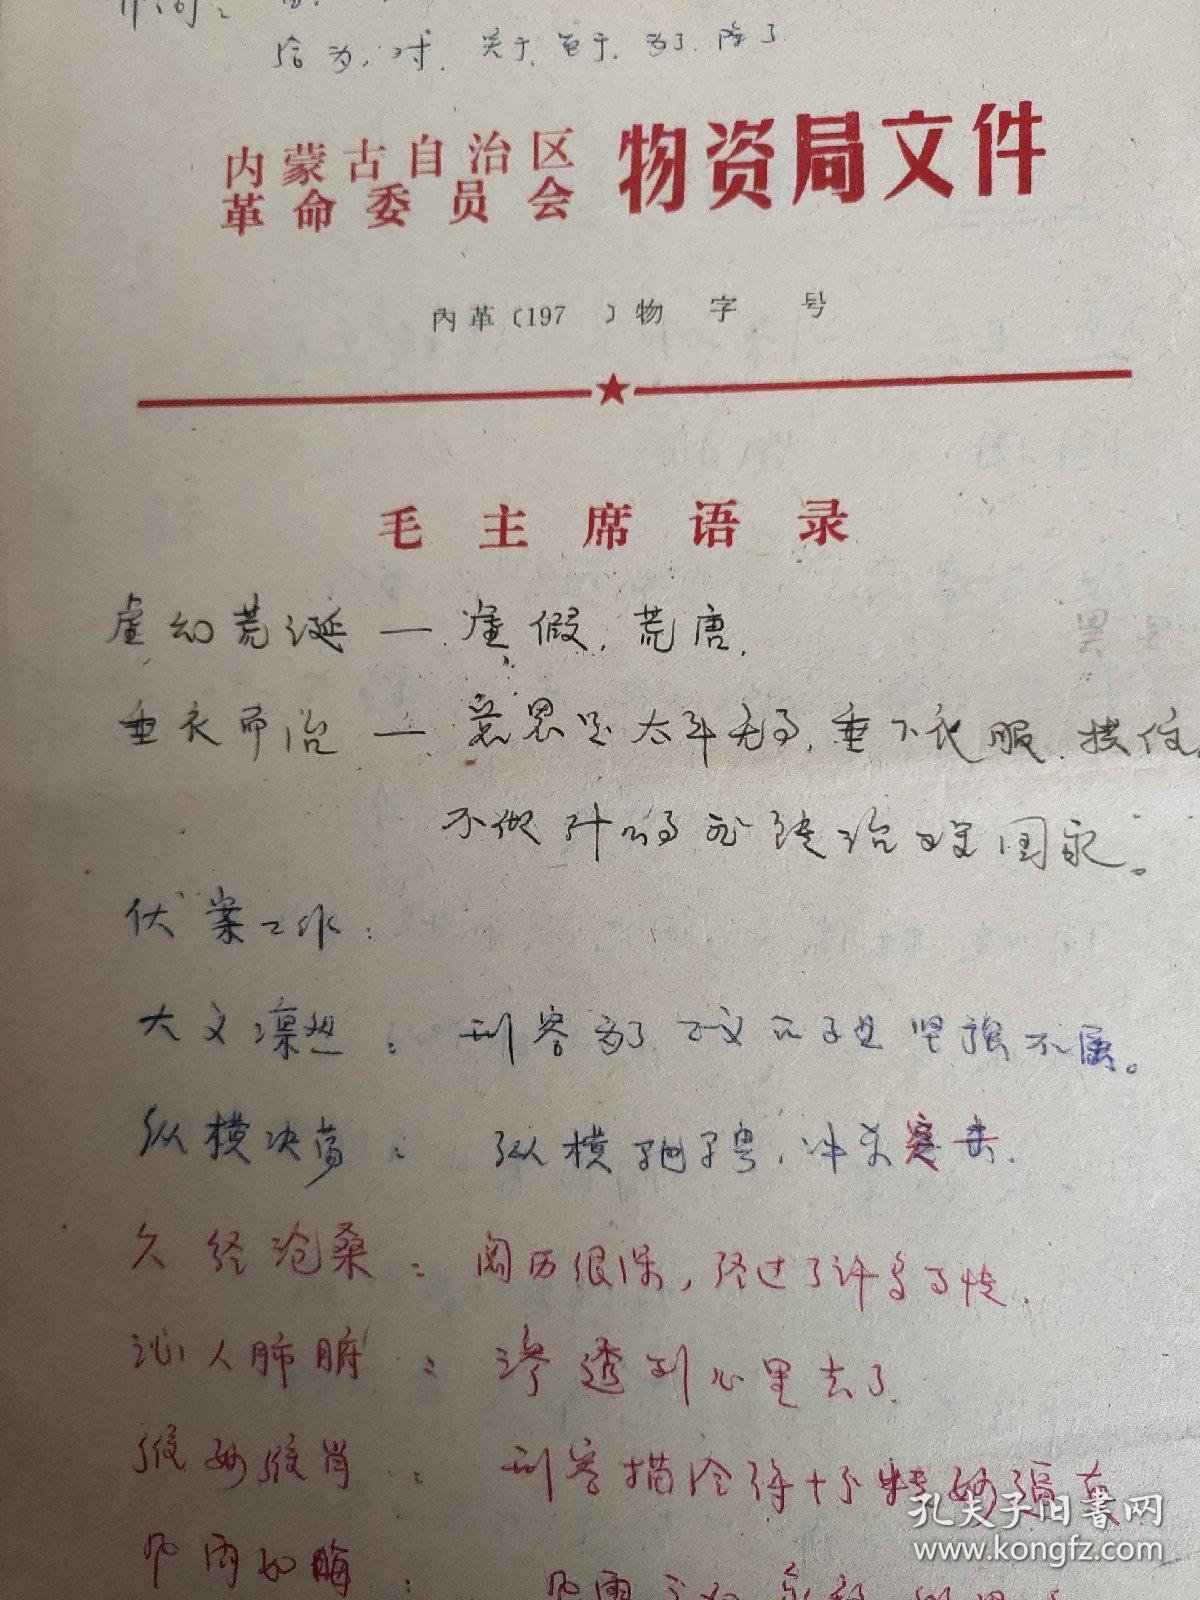 介词：
给、为、对、关于、至于、为了、除了
内蒙古自治区
革命委员会
物资局文件
内革〔197 〕物字 号
毛主席语录
虚幻荒诞 — 虚假，荒唐．
垂衣而治 — 意思是太平无事，垂下衣服
不做什么事就能治理国家。
伏案工作：
大义凛然：形容为了正义而 坚强不屈。
纵横决荡：纵横驰骋，冲杀
久经沧桑：阅历很深，经过了许多事情．
沁人肺腑：渗透到心里去了．
维妙维肖：形容描绘得十分精妙逼真
风雨如晦：
孔夫子旧书网
www.kongfz.com